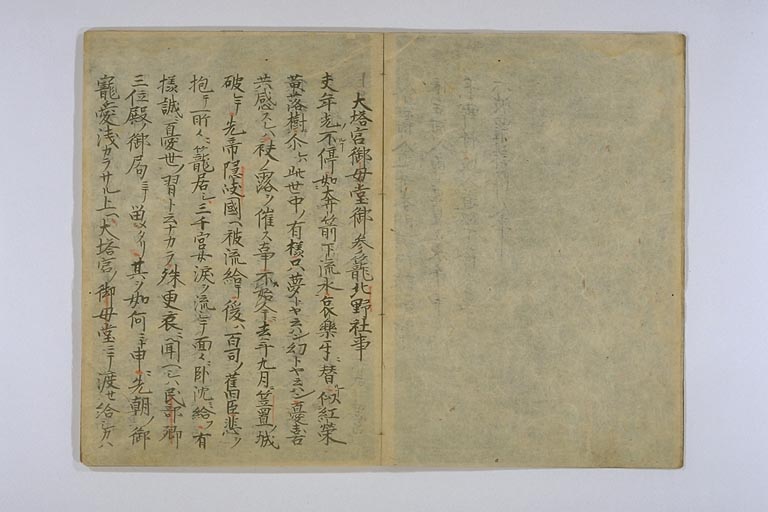 大塔宮御母堂御参籠北野社事
夫年光不停如奔箭下流水哀樂互替似紅榮
黄落樹尓ハ此世中ノ有様只夢トヤ云ハン幻トヤ云ハン憂喜
共感スレハ袂ノ露ヲ催ス事不始今去年九月笠置ノ城
破テ先帝隠岐國ヘ被流給テ後ハ百司ノ舊臣悲ヲ
抱テ所々ニ籠居シ三千宮女涙ヲ流シテ面々ニ臥沈給フ有
様誠ニ憂世ノ習ト云ナカラ殊更哀ニ聞ヘシハ民部卿
三位殿ノ御局ニテ留メタリ其ヲ如何ニト申ニ先朝ノ御
寵愛浅カラサル上ヘ大塔宮ノ御母堂ニテ渡セ給シカハ